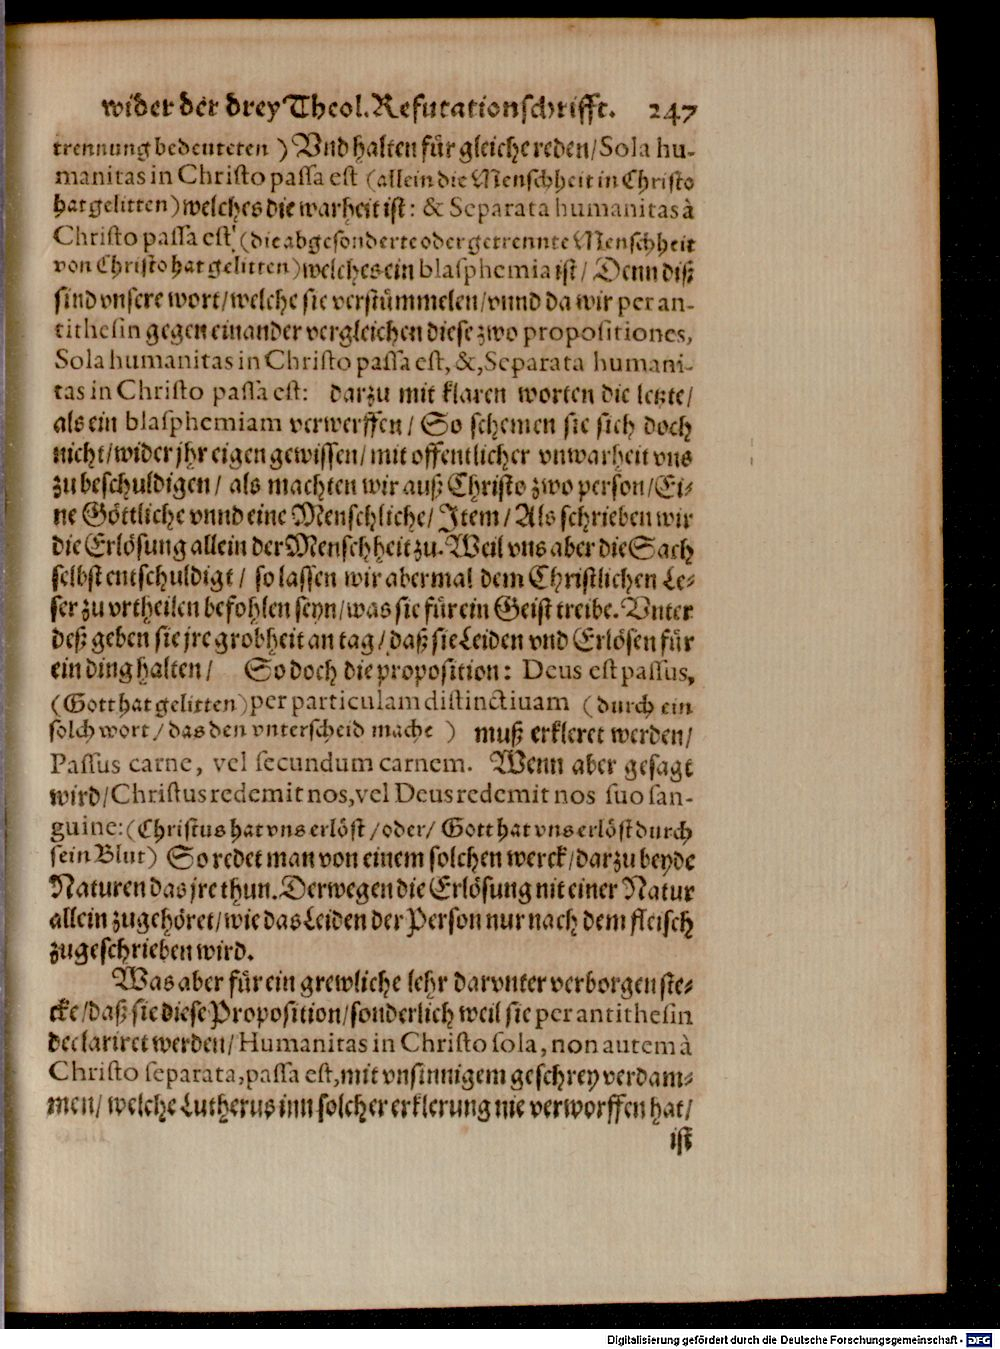 wider der drey Theol. Refutationschrifft. 247
trennung bedeuteten ) Vnd halten für gleiche reden/ Sola hu-
manitas in Christo passa est (allein die Menschheit in Christo
hat gelitten) welches die warheit ist: & Separata humanitas à
Christo passa est (die abgesonderte oder getrennte Menschheit
von Christo hat gelitten) welches ein blasphemia ist/ Denn diß
sind vnsere wort/ welche sie verstümmelen/ vnnd da wir per an-
tithesin gegen einander vergleichen diese zwo propositiones,
Sola humanitas in Christo passa est, &, Separata humani-
tas in Christo passa est: darzu mit klaren worten die letzte/
als ein blasphemiam verwerffen/ So schemen sie sich doch
nicht/ wider jhr eigen gewissen/ mit offentlicher vnwarheit vns
zu beschuldigen/ als machten wir auß Christo zwo person/ Ei-
ne Göttliche vnnd eine Menschliche/ Item/ Als schrieben wir
die Erlösung allein der Menschheit zu. Weil vns aber die Sach
selbst entschuldigt/ so lassen wir abermal dem Christlichen Le-
ser zu vrtheilen befohlen seyn/ was sie für ein Geist treibe. Vnter
deß geben sie jre grobheit an tag/ daß sie Leiden vnd Erlösen für
ein ding halten/ So doch die proposition: Deus est passus,
(Gott hat gelitten) per particulam distinctiuam (durch ein
solch wort/ das den vnterscheid mache ) muß erkleret werden/
Passus carne, vel secundum carnem. Wenn aber gesagt
wird/ Christus redemit nos, vel Deus redemit nos suo san-
guine: (Christus hat vns erlöst/ oder/ Gott hat vns erlöst durch
sein Blut) So redet man von einem solchen werck/ darzu beyde
Naturen das jre thun. Derwegen die Erlösung nit einer Natur
allein zugehöret/ wie das Leiden der Person nur nach dem fleisch
zugeschrieben wird.
Was aber für ein grewliche lehr darunter verborgen ste-
cke/ daß sie diese Proposition/ sonderlich weil sie per antithesin
declariret werden/ Humanitas in Christo sola, non autem à
Christo separata, passa est, mit vnsinnigem geschrey verdam-
men/ welche Lutherus inn solcher erklerung nie verworffen hat/
ist
Digitalisierung gefördert durch die Deutsche Forschungsgemeinschaft - DFG